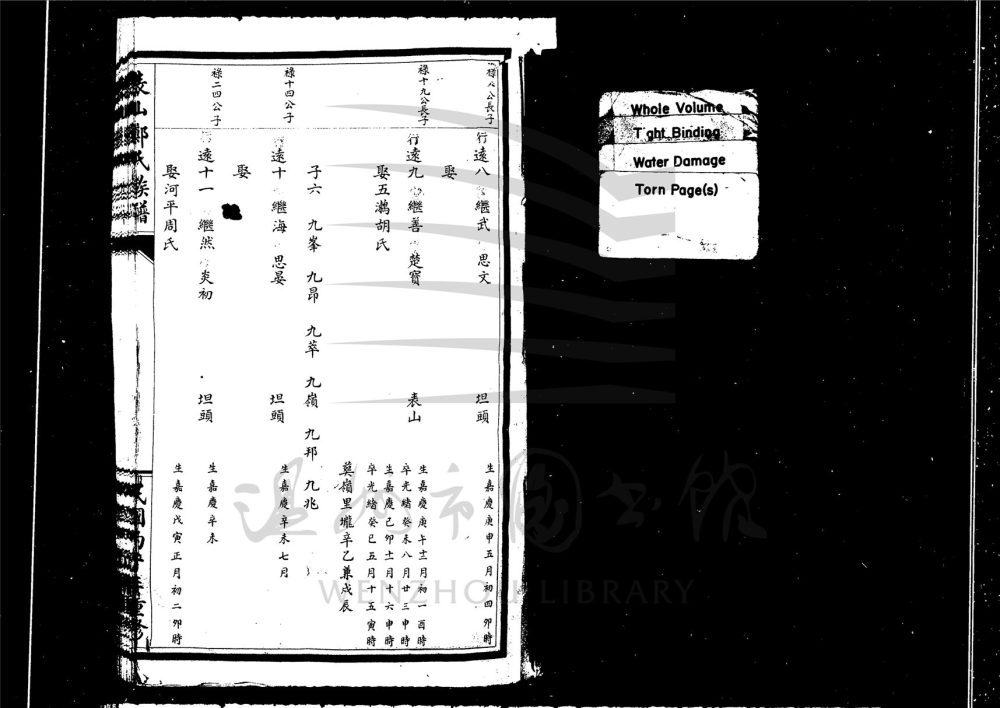 祿八公長子
行遠八 繼武 思文 坦頭
生嘉慶庚申五月初四卯時
娶
祿十九公長子
行遠九 繼善 楚寶 表山
生嘉慶庚午十二月初一酉時
卒光緒癸未八月廿三申時
娶五鸂胡氏
生嘉慶己卯十一月十六申時
卒光緒癸巳五月十五寅時
莫嶺里壠辛乙兼戌辰
子六 九峯 九昂 九萃 九嶺 九邦 九兆
祿十四公子
遠十 繼海 思晏 坦頭
生嘉慶辛未七月
娶
祿二四公子
行遠十一 繼然 炎初 坦頭
生嘉慶辛未
娶河平周氏
生嘉慶戊寅正月初二卯時
鄭氏族譜
Whole Volume
Tight Binding
Water Damage
Torn Page(s)
温州市图书馆
WENZHOU LIBRARY